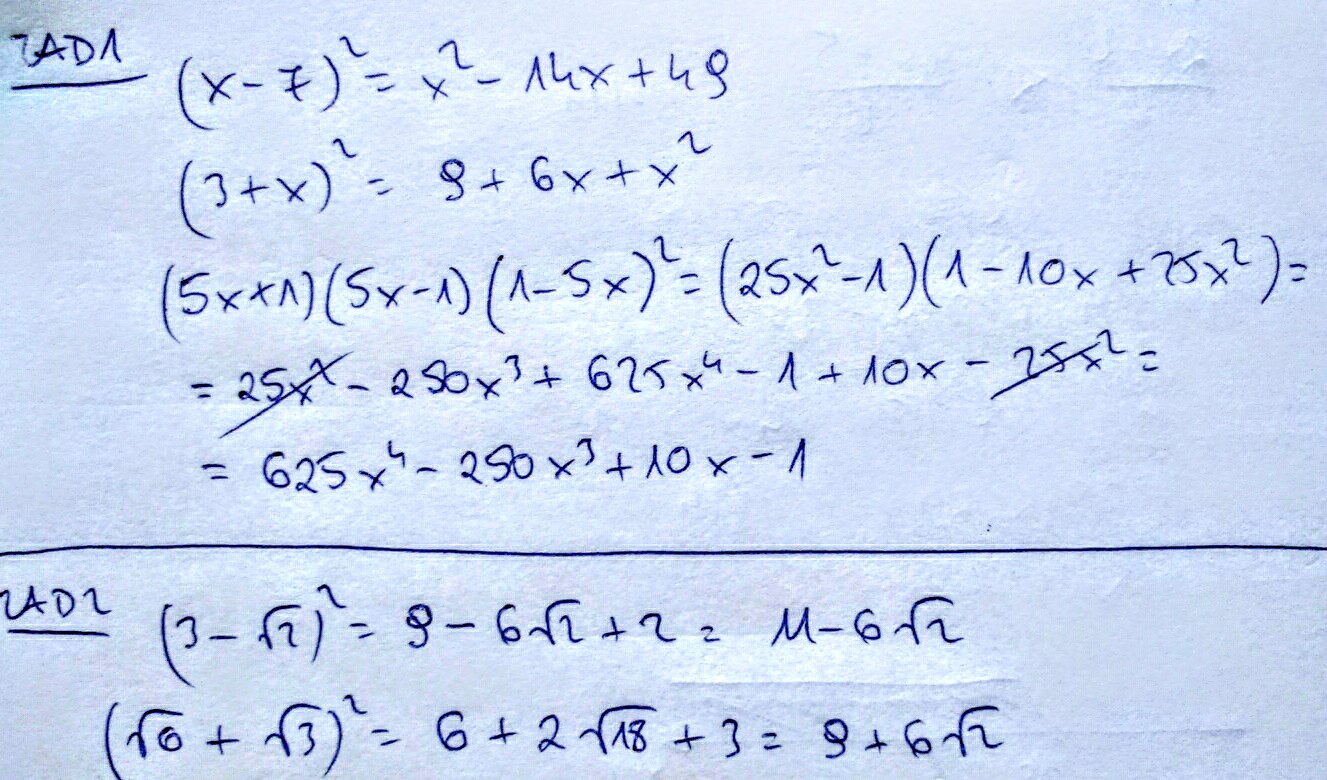 ZAD1 (x-7)² = x² - 14x + 49
(3+x)² = 9 + 6x + x²
(5x+1)(5x-1)(1-5x)² = (25x²-1)(1-10x+25x²) =
= 25x² - 250x³ + 625x⁴ - 1 + 10x - 25x² =
= 625x⁴ - 250x³ + 10x - 1
ZAD2 (3-√2)² = 9 - 6√2 + 2 = 11 - 6√2
(√6 + √3)² = 6 + 2√18 + 3 = 9 + 6√2